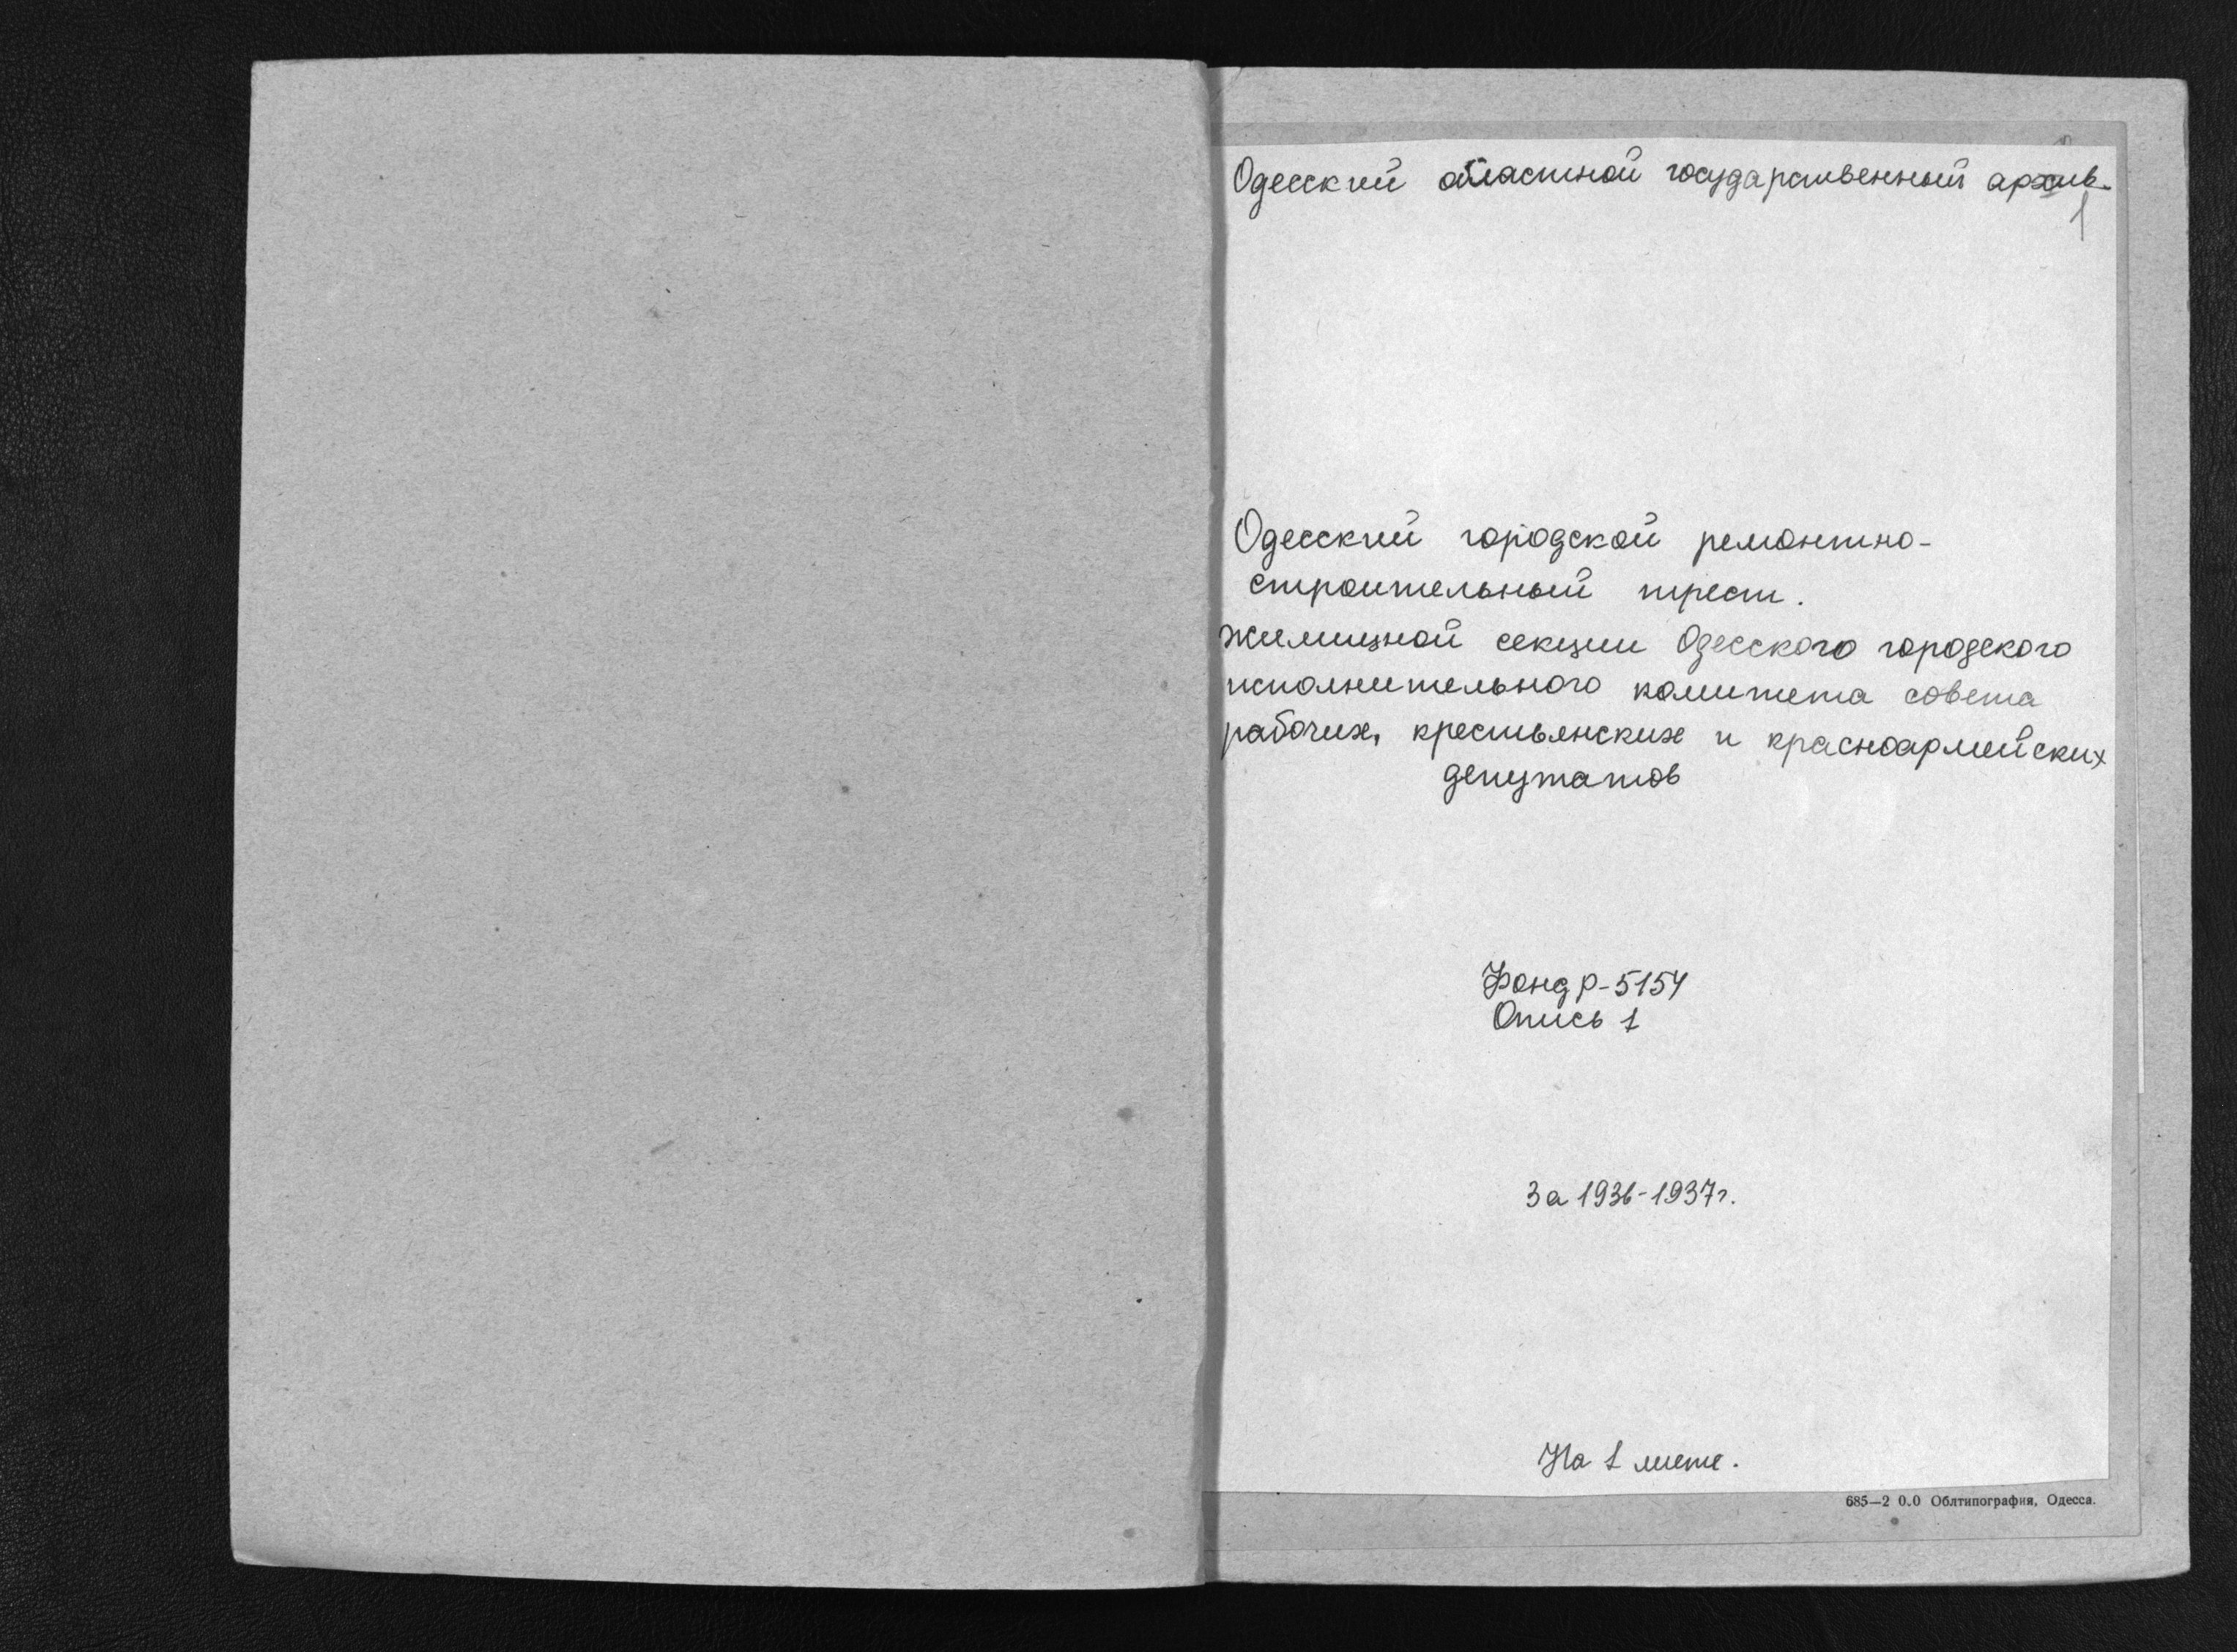 Одесский областной государственный архив.
1
Одесский городской ремонтно-
строительный трест.
жилищной секции Одесского городского
исполнительного комитета совета
рабочих, крестьянских и красноармейских
депутатов
Фонд р-5154
Опись 1
За 1936-1937г.
На 1 листе.
685—2 0.0 Облтипография, Одесса.